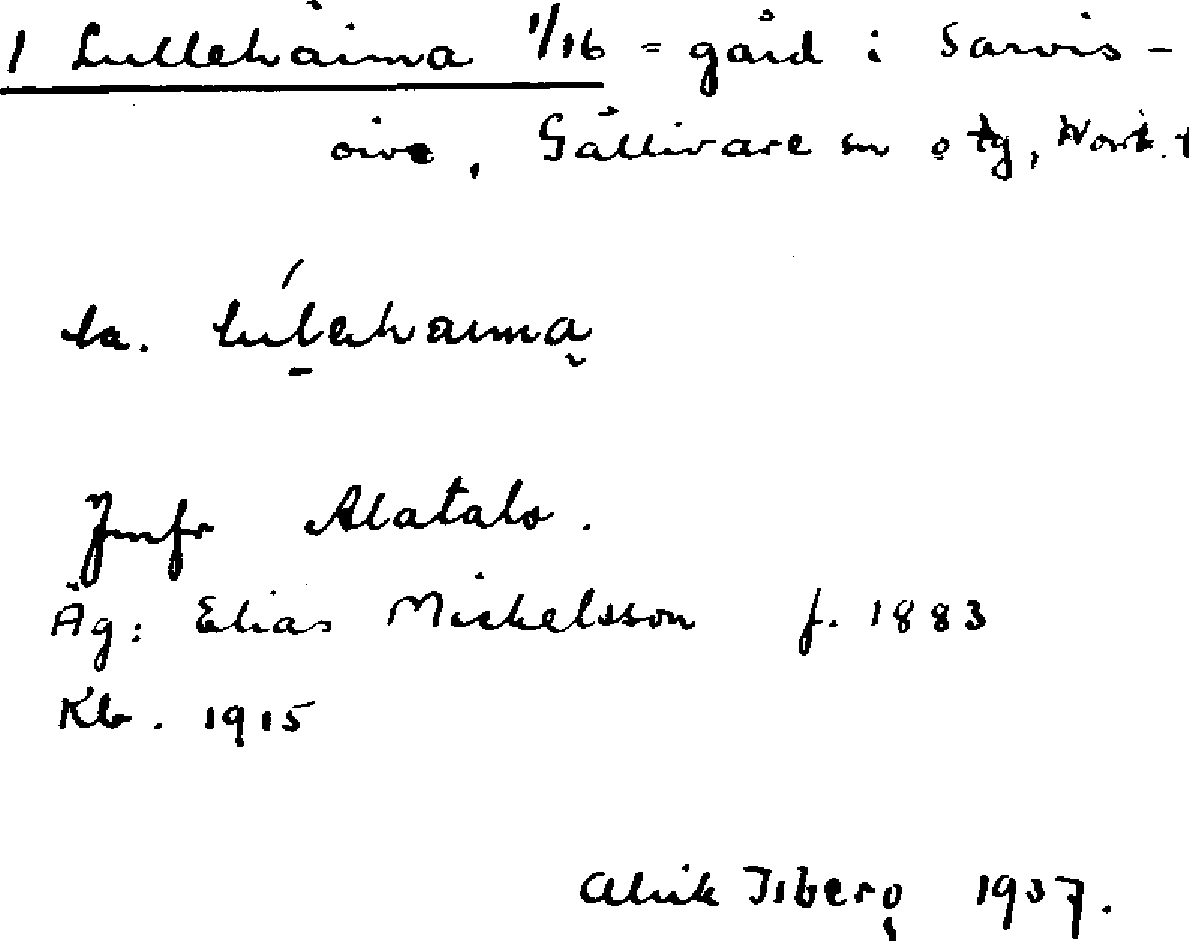 1 Lullehäima 1/16 = gård i Sarvis-
oive, Gällivare sn o tg, Norrb. l
la. lúlehaima
Jmfr Alatalo.
Äg: Elias Mickelsson f. 1883
Kb. 1915
Alrik Isberg 1937.